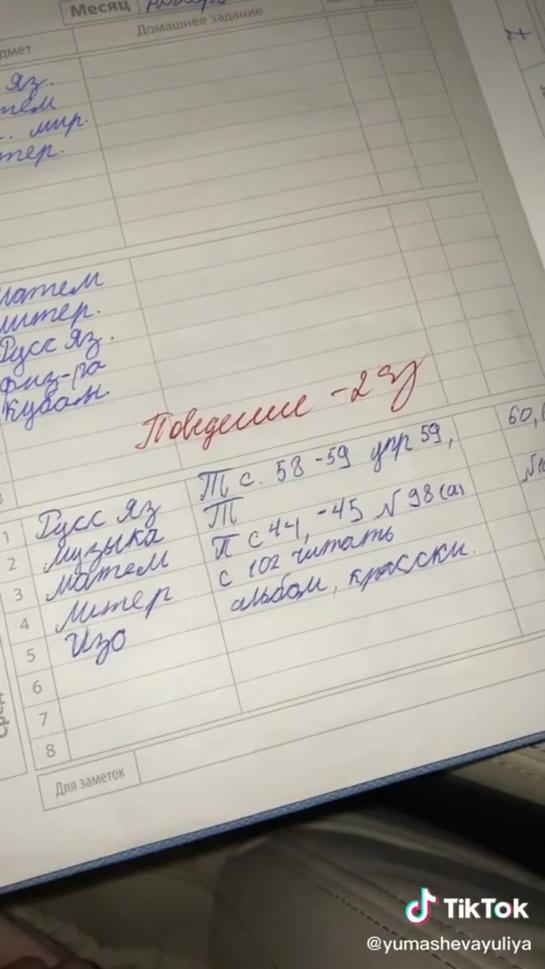 Месяц
Домашнее задание
яз.
мир.
литер.
Русс Яз.
физ-ра
Кубан.
Поведение -2
1 Русс яз Т с. 58 -59 упр 59, 60,
2 Музыка Т
3 Матем П с 44, -45 № 98 (а)
4 Литер с 102 читать
5 Изо альбом, красски.
6
7
8
Для заметок
TikTok
@yumashevayuliya